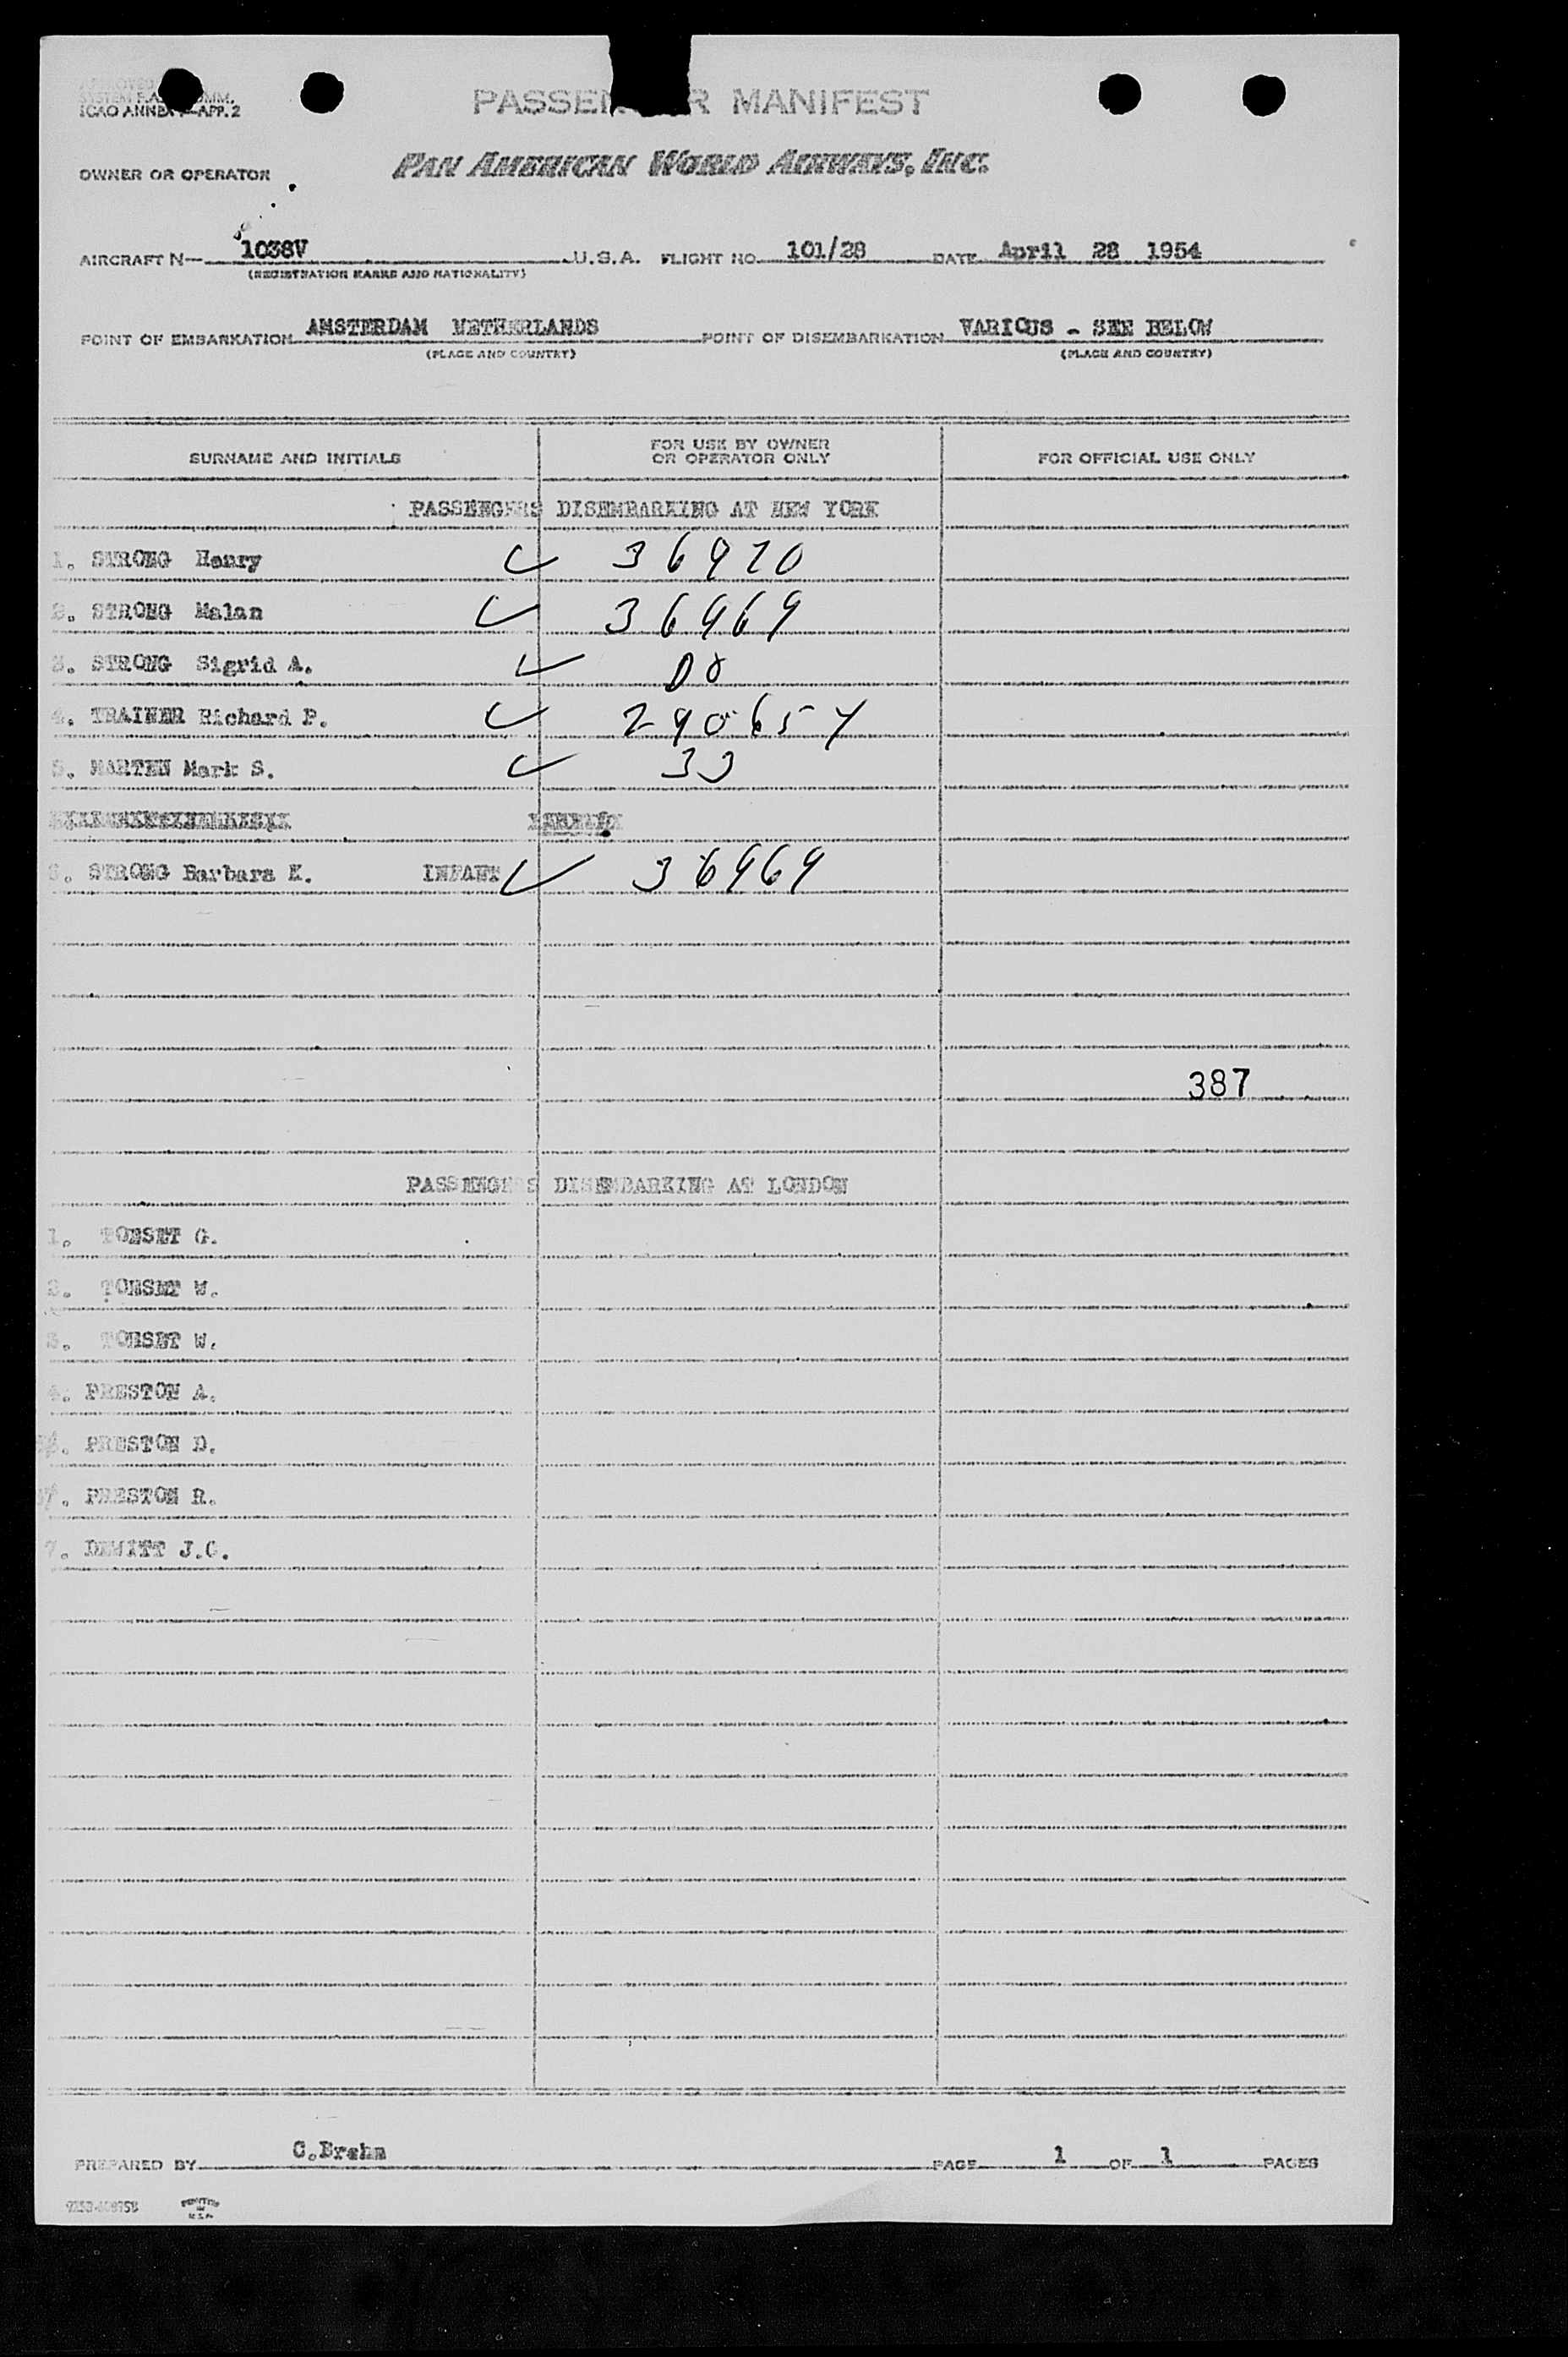 ICAO ANNEX 9—APP. 2
PASSENGER MANIFEST
OWNER OR OPERATOR PAN AMERICAN WORLD AIRWAYS, INC.
AIRCRAFT N— 1038V U.S.A. FLIGHT NO. 101/28 DATE April 28 1954
(REGISTRATION MARKS AND NATIONALITY)
POINT OF EMBARKATION AMSTERDAM NETHERLANDS POINT OF DISEMBARKATION VARIOUS - SEE BELOW
(PLACE AND COUNTRY) (PLACE AND COUNTRY)
SURNAME AND INITIALS FOR USE BY OWNER OR OPERATOR ONLY FOR OFFICIAL USE ONLY
PASSENGERS DISEMBARKING AT NEW YORK
1. STRONG Henry ✓ 36970
2. STRONG Malan ✓ 36969
3. STRONG Sigrid A. ✓ DO
4. TRAINER Richard P. ✓
5. MARTEN Mark S. ✓ 33
6. STRONG Barbara K. INFANT ✓ 36969
387
PASSENGERS DISEMBARKING AT LONDON
1. TONSET G.
2. TONSET W.
3. TONSET W.
4. PRESTON A.
PRESTON D.
PRESTON R.
7. DEWITT J.C.
PREPARED BY C.Brehm PAGE 1 OF 1 PAGES
PRINTED IN U.S.A.